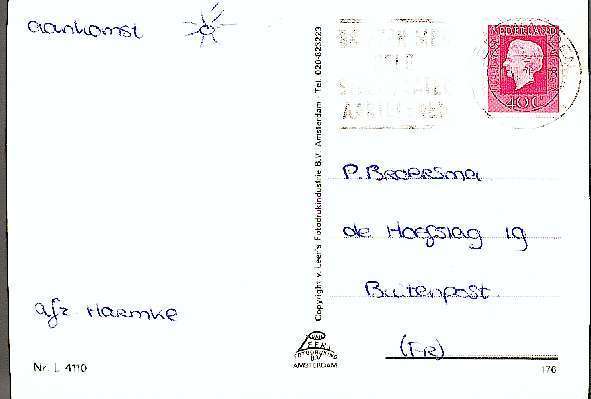 aankomst
NEDERLAND
40c
P. Boersma
de Horfslag 19
Buitenpost
(Fr)
afz Harmke
Copyright v. Leer's Fotodrukindustrie B.V. Amsterdam Tel. 020-823223
VAN LEER
FOTODRUKIND
B.V.
AMSTERDAM
Nr. L 4110
176